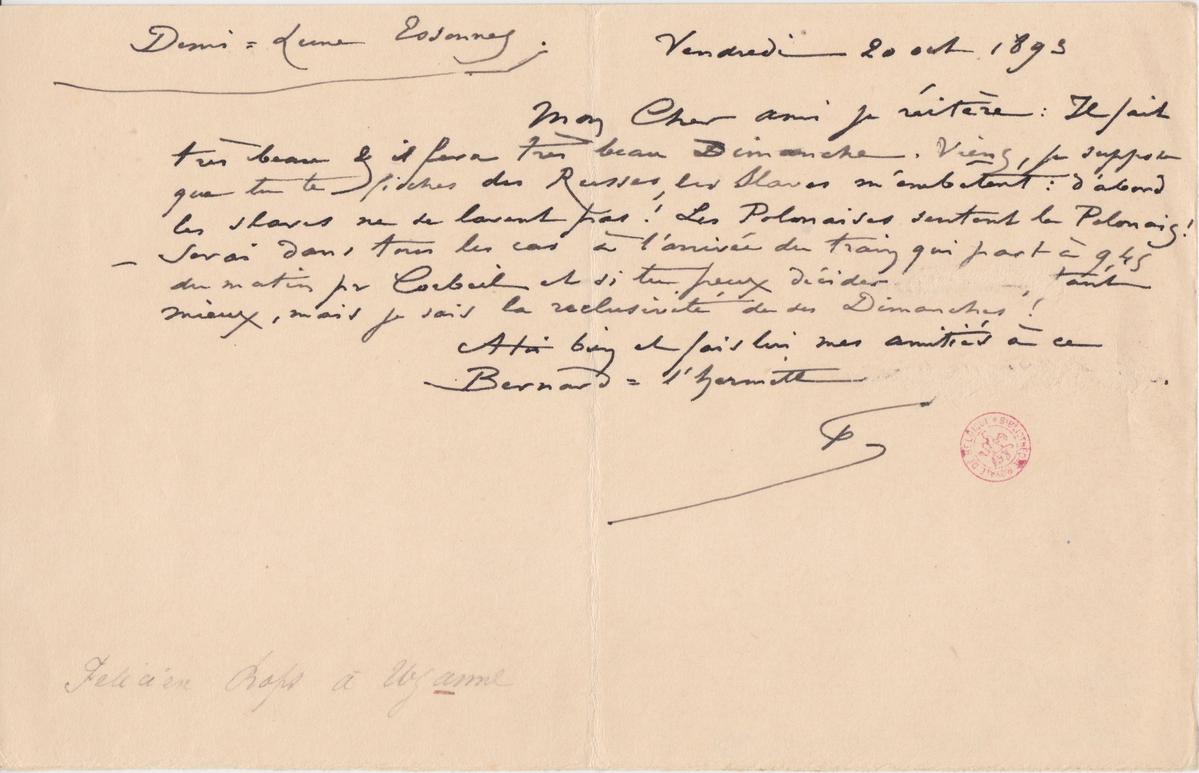 Demi=Lune Essonnes.
Vendredi 20 oct 1893
Mon Cher ami je réitère : Il fait
très beau & il fera très beau Dimanche. Viens, je suppose
que tu te fiches des Russes, les Slaves m'embêtent : d'abord
les slaves ne se lavent pas! Les Polonaises sentent le Polonais!
– Serai dans tous les cas à l'arrivée du train qui part à 9 45
du matin pr Corbeil et si tu peux décider tant
mieux, mais je sais la reclusiveté de ses Dimanches!
A toi bien et fais lui mes amitiés à ce
– Bernard = l'hermitte
Felicien Rops à Uzanne
BIBLIOTHÈQUE ROYALE DE BELGIQUE